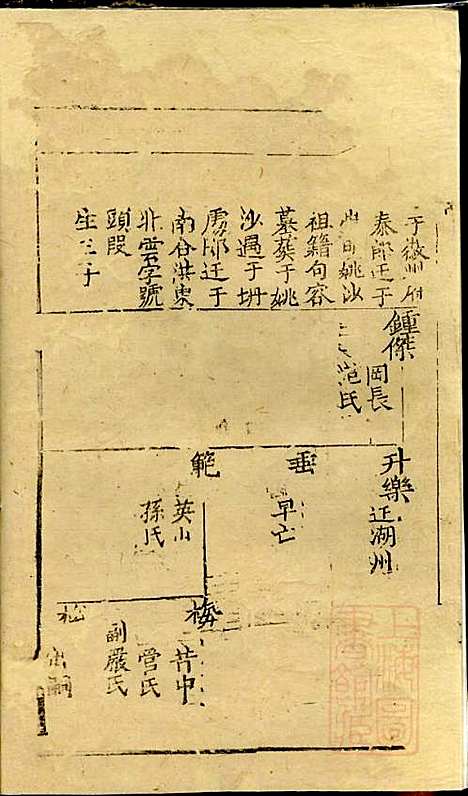 于徽州府
泰郎迁于
姚沙
祖籍句容
墓葬于姚
沙遇于坍
虜郎迁于
南谷洪東
北雲字號
頭段
生三子
鍾傑
岡長
范氏
升樂
迁湖州
垂
早亡
範
英山
孫氏
梅
昔中
管氏
副嚴氏
松
出嗣